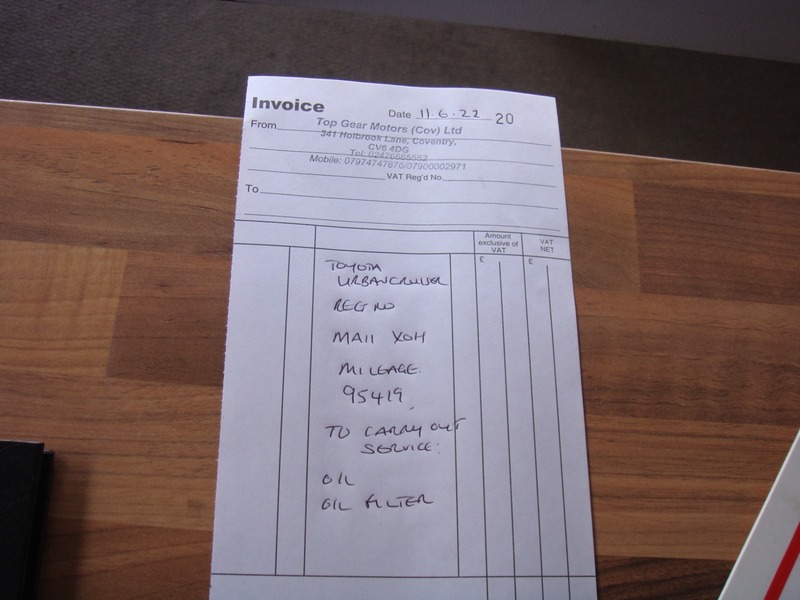 Invoice
Date 11.6.22 20
From Top Gear Motors (Cov) Ltd
341 Holbrook Lane, Coventry,
CV6 4DG
Tel: 02476665552
Mobile: 07974747876/07900002971
VAT Reg'd No.
To
Amount exclusive of VAT
VAT NET
£ £
TOYOTA
URBANCRUISER
REG NO
MA11 XOH
MILEAGE.
95419
TO CARRY OUT
SERVICE:
OIL
OIL FILTER